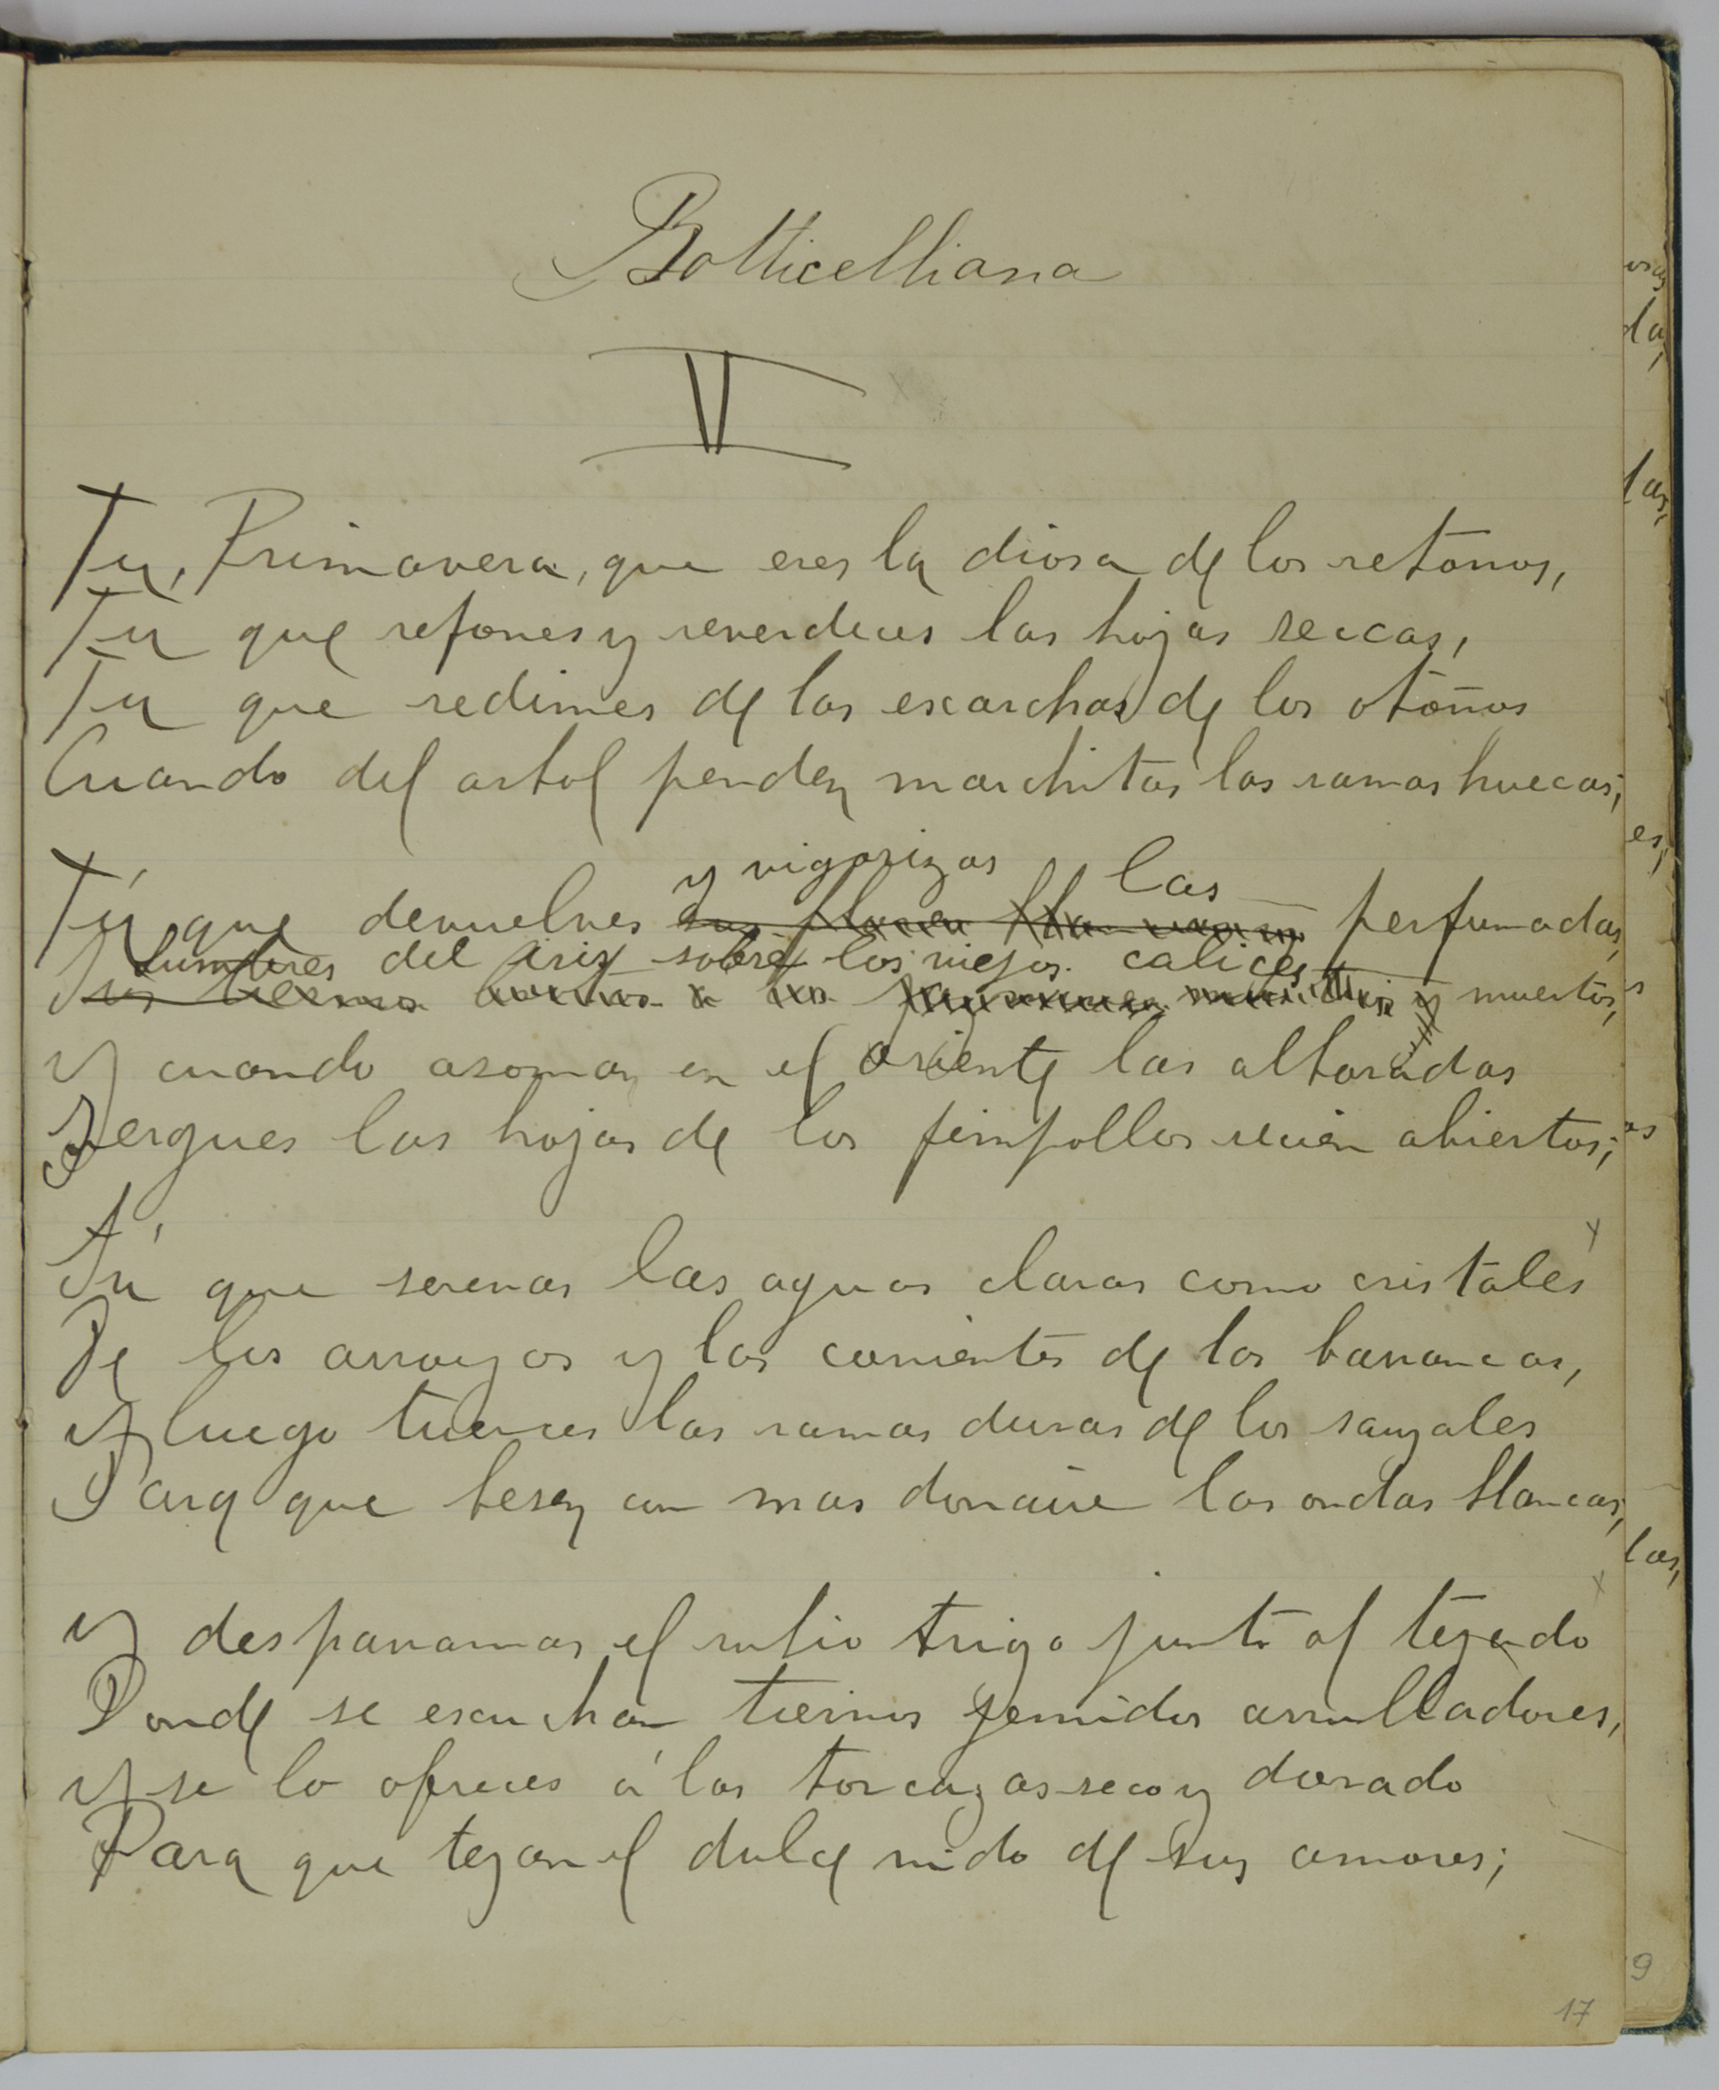 Botticelliana
V
Tu, Primavera, que eres la diosa de los retoños,
Tu que retoñes y reverdeces las hojas seccas,
Tu que redimes de las escarchas de los otoños
Cuando del arbol penden marchitas las ramas huecas;
y vigorizas las
Tú que devuelves perfumadas,
Lumbres del iris sobre los viejos calices
muertos,
y cuando asoman en el oriente las alboradas
Yergues las hojas de los pimpollos recien abiertos;
Tú que serenas las aguas claras como cristales
De los arroyos y las corrientes de las barrancas,
y luego tuerces las ramas duras de los sauzales
Para que besen con mas donaire las ondas blancas,
y desparramas el rubio trigo junto al tejado
Donde se escuchan tiernos gemidos arrulladores,
y se lo ofreces á las torcazas seco y dorado
Para que tejan el dulce nido de sus amores;
17
las,
da,
las,
es,
s
as
9